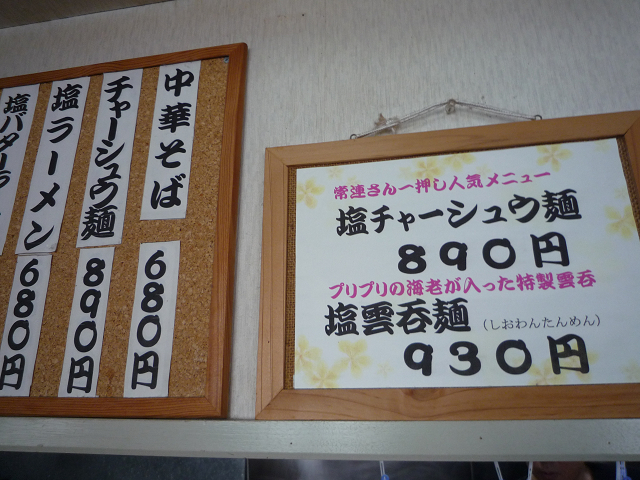 中華そば
680円
チャーシュウ麺
890円
塩ラーメン
680円
塩バターラ
常連さん一押し人気メニュー
塩チャーシュウ麺
890円
プリプリの海老が入った特製雲呑
塩雲呑麺(しおわんたんめん)
930円